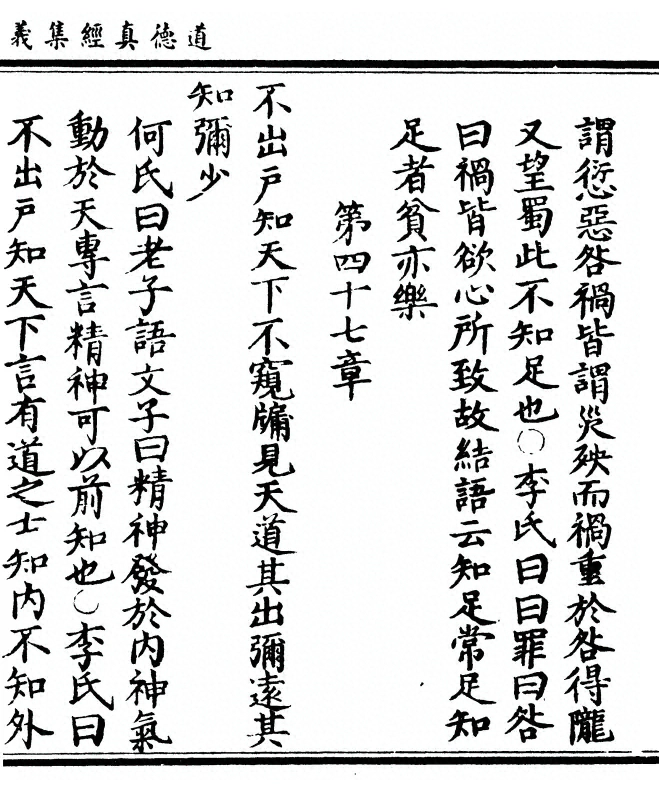 道德真經集義
謂愆惡咎禍皆謂災殃而禍重於咎得隴
又望蜀此不知足也○李氏曰曰罪曰咎
曰禍皆欲心所致故結語云知足常足知
足者貧亦樂
第四十七章
不出戶知天下不窺牖見天道其出彌遠其
知彌少
何氏曰老子語文子曰精神發於內神氣
動於天專言精神可以前知也○李氏曰
不出戶知天下言有道之士知內不知外